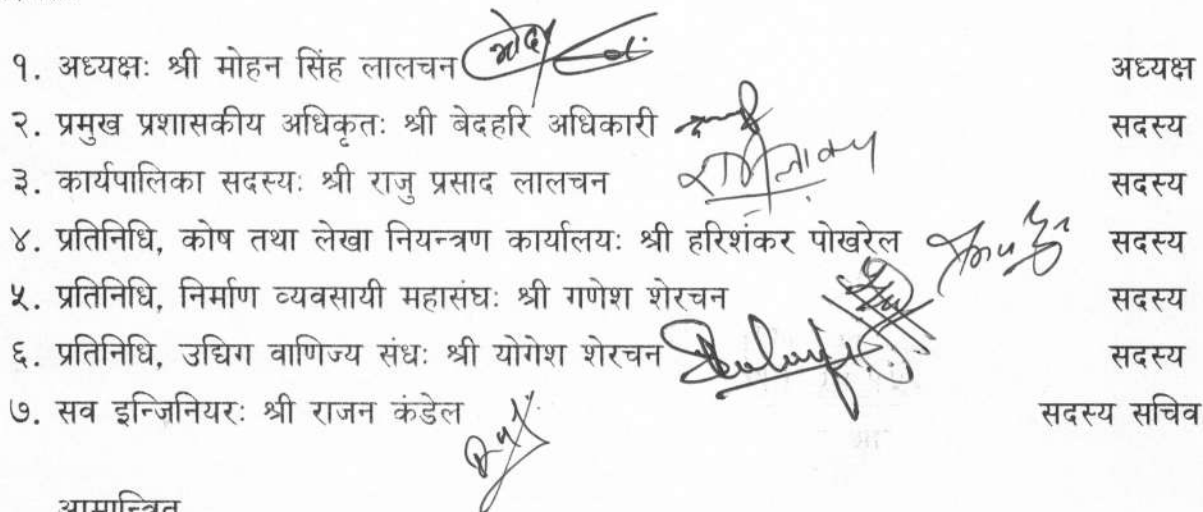 १. अध्यक्षः श्री मोहन सिंह लालचन अध्यक्ष
२. प्रमुख प्रशासकीय अधिकृतः श्री बेदहरि अधिकारी सदस्य
३. कार्यपालिका सदस्यः श्री राजु प्रसाद लालचन सदस्य
४. प्रतिनिधि, कोष तथा लेखा नियन्त्रण कार्यालयः श्री हरिशंकर पोखरेल सदस्य
५. प्रतिनिधि, निर्माण व्यवसायी महासंघः श्री गणेश शेरचन सदस्य
६. प्रतिनिधि, उद्यिग वाणिज्य संधः श्री योगेश शेरचन सदस्य
७. सव इन्जिनियरः श्री राजन कंडेल सदस्य सचिव
आमान्त्रित